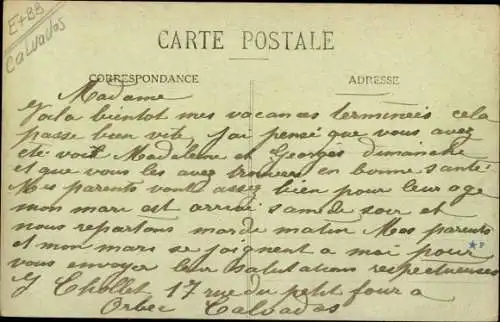 E+BB
CALVADOS
CARTE POSTALE
CORRESPONDANCE
ADRESSE
Madame
Voila bientot mes vacances terminées cela
passe bien vite J'ai pensé que vous avez
été voir Madeleine et Georges dimanche
et que vous les avez trouver en bonne santé
Mes parents vont assez bien pour leur age
mon mari est arrivé samedi soir et
nous repartons mardi matin Mes parents
et mon mari se joignent a moi pour
vous envoyer leur salutations respectueuses
Y Chollet 17 rue du petit four a
Orbec Calvados